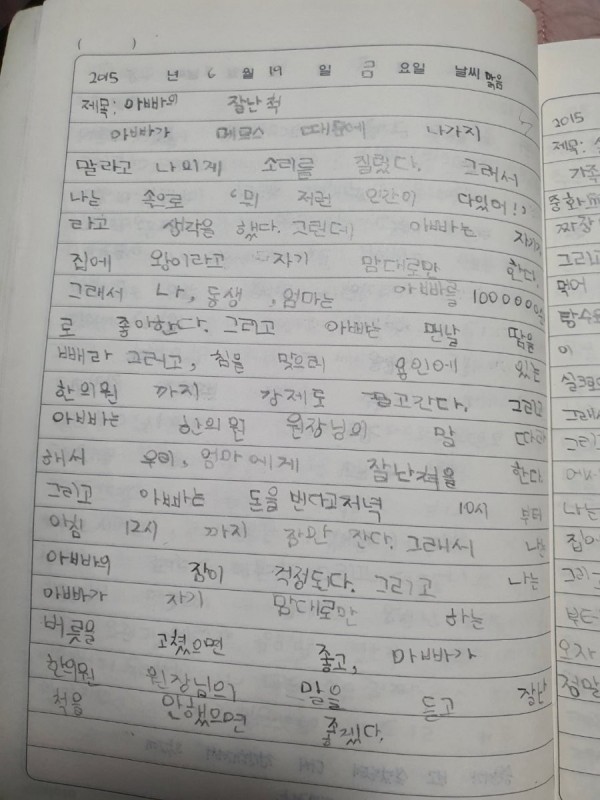 ( )
2015 년 6 월 19 일 금 요일 날씨 맑음
제목: 아빠의 잘난척
아빠가 메르스 때문에 나가지
말라고 나의게 소리를 질렀다. 그래서
나는 속으로 '뭐 저런 인간이 다있어!'
라고 생각을 했다. 그런데 아빠는 자기가
집에 왕이라고 자기 맘대로만 한다.
그래서 나, 동생, 엄마는 아빠를
로 좋아한다. 그리고 아빠는 맨날 땀을
빼라 그러고, 침을 맞으러 용인에 있는
한의원 까지 강제로 끌고간다. 그리고
아빠는 한의원 원장님의 말
해서 우리, 엄마에게 잘난척을 한다.
그리고 아빠는 돈을 번다고저녁 10시 부터
아침 12시 까지 잠만 잔다. 그래서 난
아빠의 잠이 걱정된다. 그리고 나는
아빠가 자기 맘대로만 하는
버릇을 고쳤으면 좋고, 아빠가
한의원 원장님의 말을 듣고 잘난
척을 안했으면 좋겠다.
2015
제목:
가족
중화
짜장
그리고
먹어
탕수육
이
그래서
그리고
나는
집에
그리고
부터
오자
정말